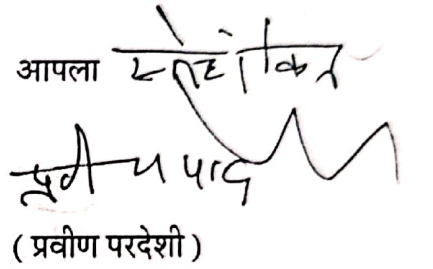 आपला स्नेहांकित
प्रवीण परदेशी
( प्रवीण परदेशी )